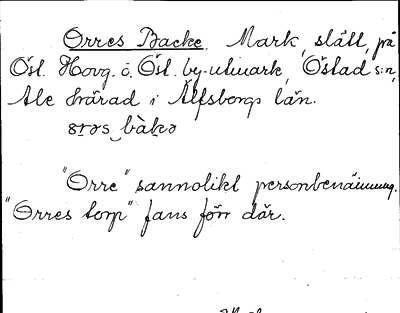 Orres Backe. Mark, slätt, på
Öst. Hovg. o. Öst. by-utmark, Östad s:n,
Ale härad i Älfsborgs län.
"Orre" sannolikt personbenämning.
"Orres torp" fans förr där.